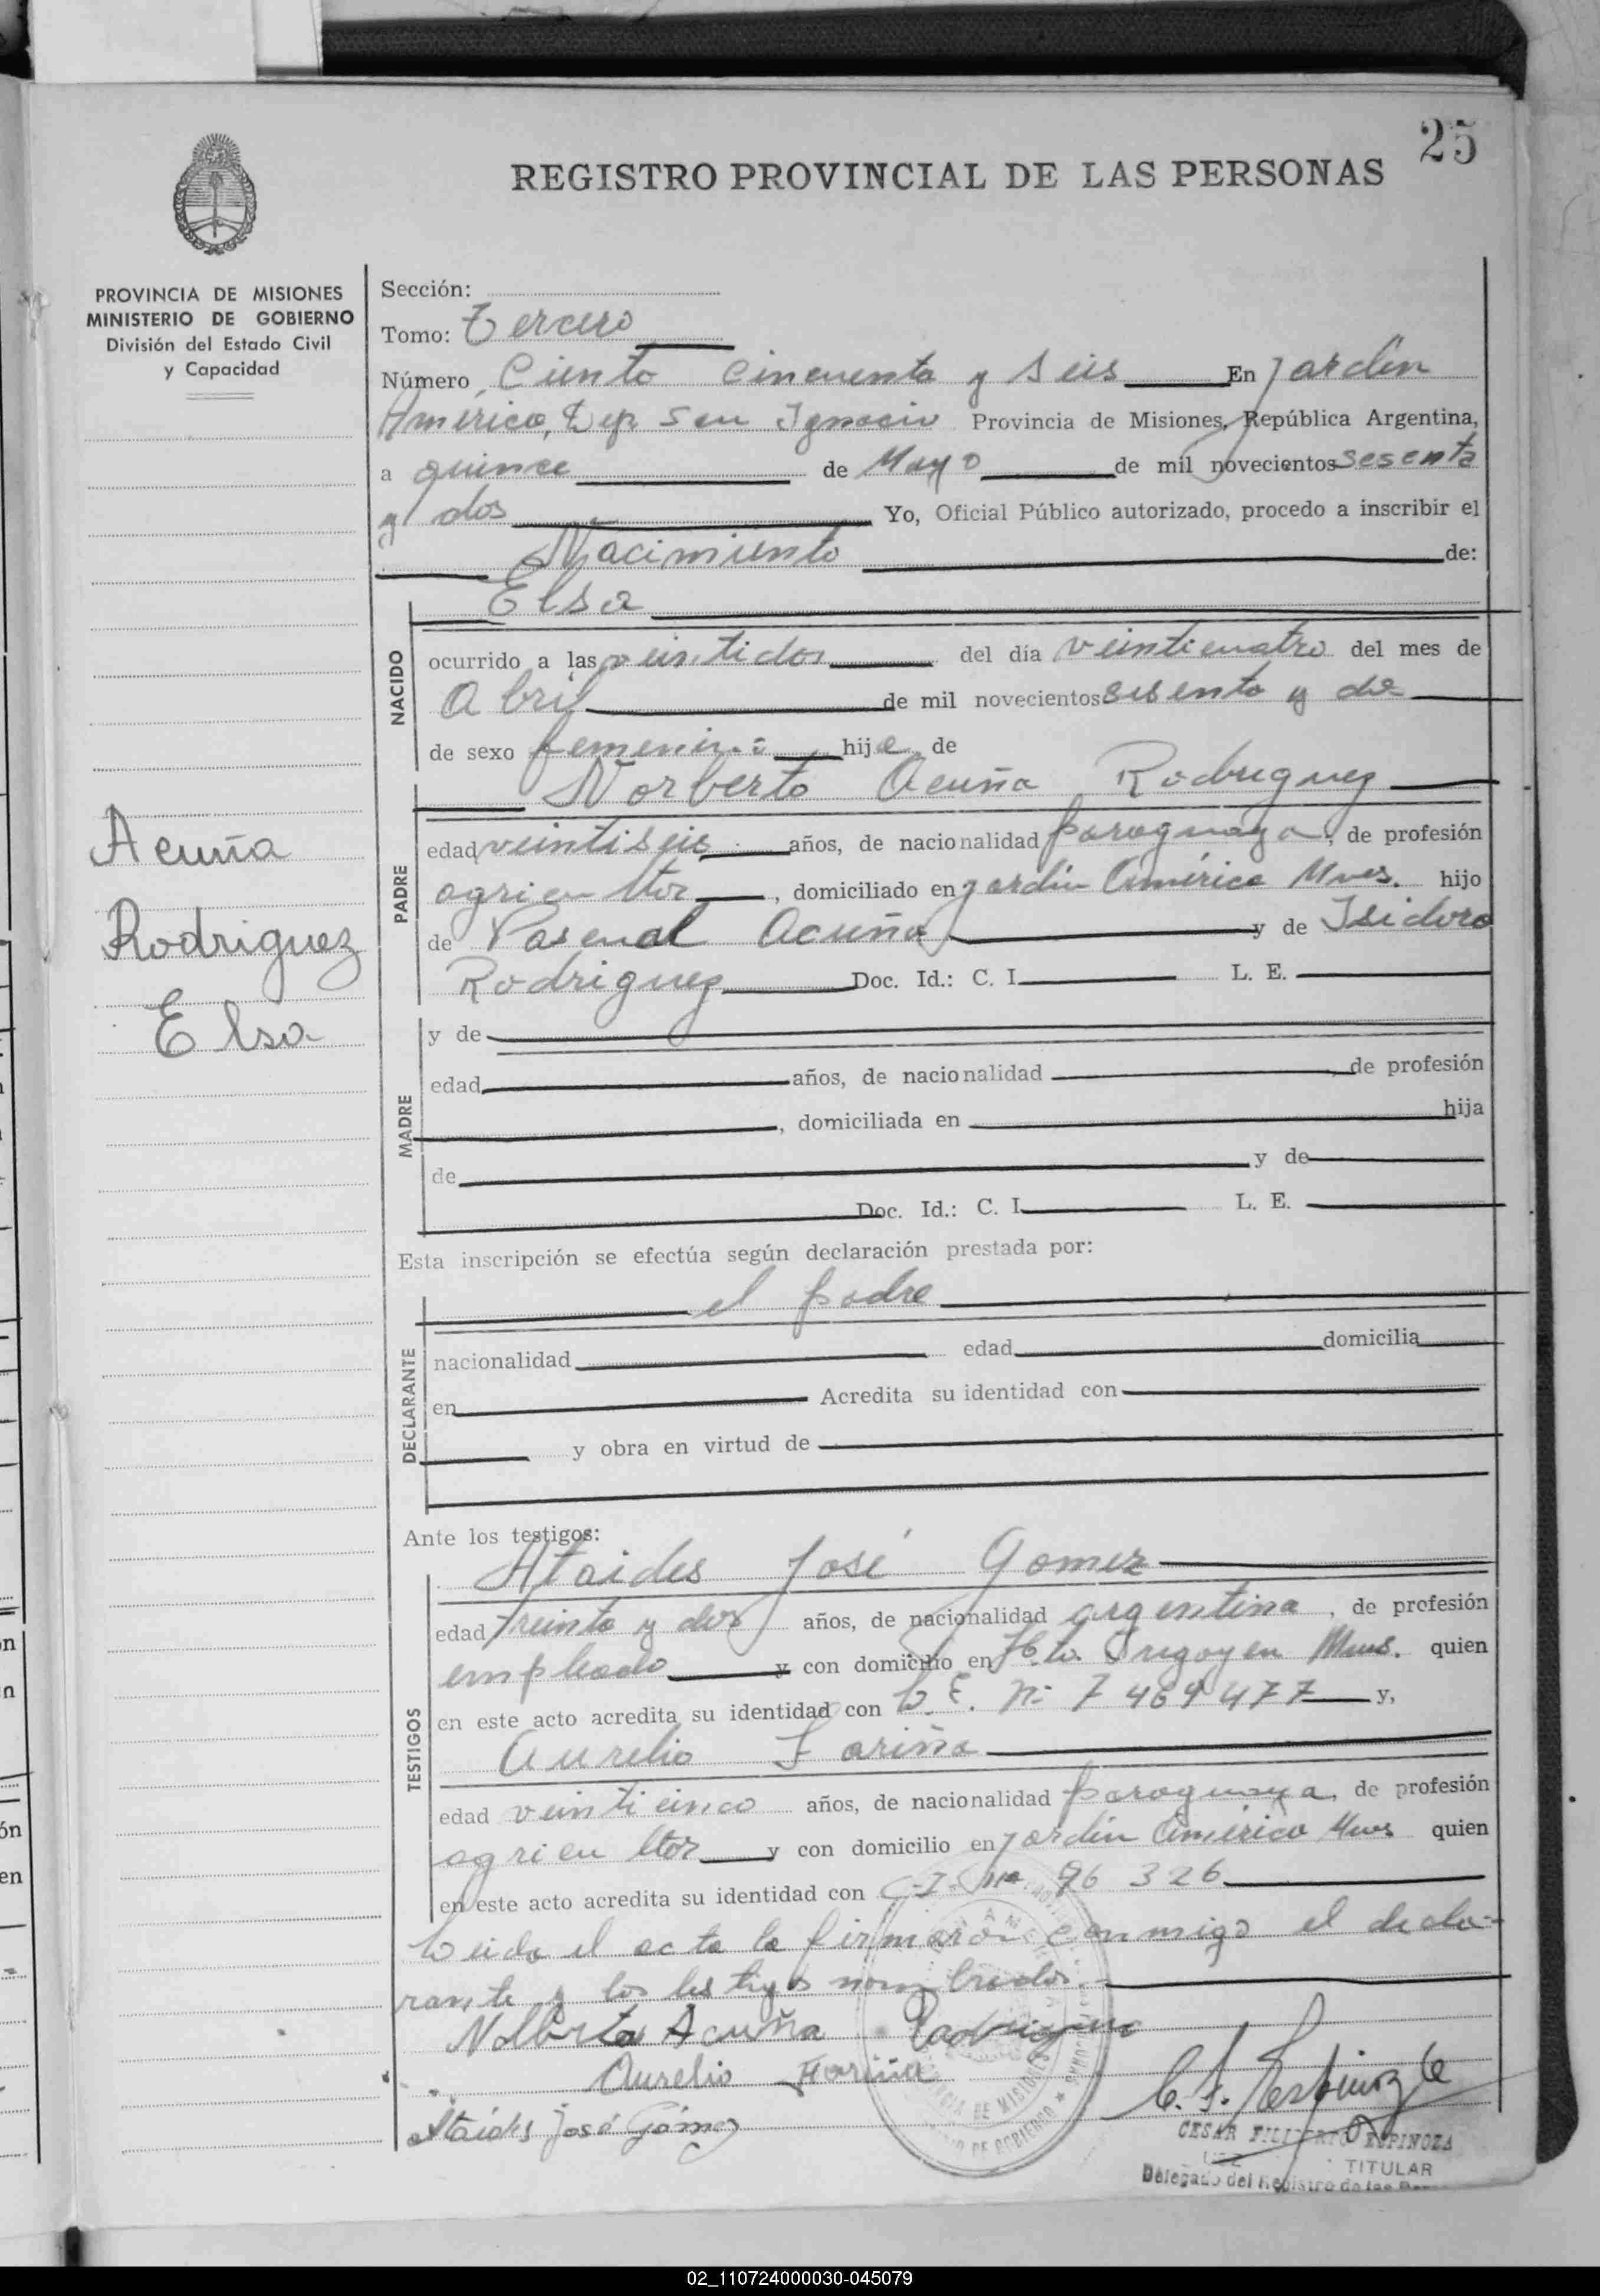 25
REGISTRO PROVINCIAL DE LAS PERSONAS
PROVINCIA DE MISIONES
MINISTERIO DE GOBIERNO
División del Estado Civil
y Capacidad
Acuña
Rodriguez
Elsa
Sección:
Tomo: Tercero
Número Ciento cincuenta y seis En Jardín
América, Dep. San Ignacio Provincia de Misiones, República Argentina,
a quince de Mayo de mil novecientos sesenta
y dos Yo, Oficial Público autorizado, procedo a inscribir el
Nacimiento de:
Elsa
NACIDO
ocurrido a las veintidos del día veinticuatro del mes de
Abril de mil novecientos sesenta y dos
de sexo femenino hija de
Norberto Acuña Rodriguez
PADRE
edad veintiseis años, de nacionalidad paraguaya, de profesión
agricultor, domiciliado en Jardín América Mnes. hijo
de Pascual Acuña y de Isidora
Rodriguez Doc. Id.: C. I. L. E.
MADRE
y de
edad años, de nacionalidad de profesión
, domiciliada en hija
de y de
Doc. Id.: C. I. L. E.
Esta inscripción se efectúa según declaración prestada por:
el padre
DECLARANTE
nacionalidad edad domicilia
en Acredita su identidad con
y obra en virtud de
Ante los testigos:
Ataides José Gomez
TESTIGOS
edad treinta y dos años, de nacionalidad argentina, de profesión
empleado y con domicilio en Hto. Irigoyen Mnes. quien
en este acto acredita su identidad con L. E. Nº 7 464 477 y,
Aurelio Fariña
edad veinticinco años, de nacionalidad paraguaya, de profesión
agricultor y con domicilio en Jardín América Mnes quien
en este acto acredita su identidad con C. I. Nº 96 326
Leida el acta la firmaron conmigo el decla-
rante y los testigos nombrados.-
Nolberto Acuña Rodriguez
Aurelio Fariña
Ataides José Gómez
C. F. Espinoza
CESAR FILIBERTO ESPINOZA
TITULAR
Delegado del Registro de las
02_110724000030-045079